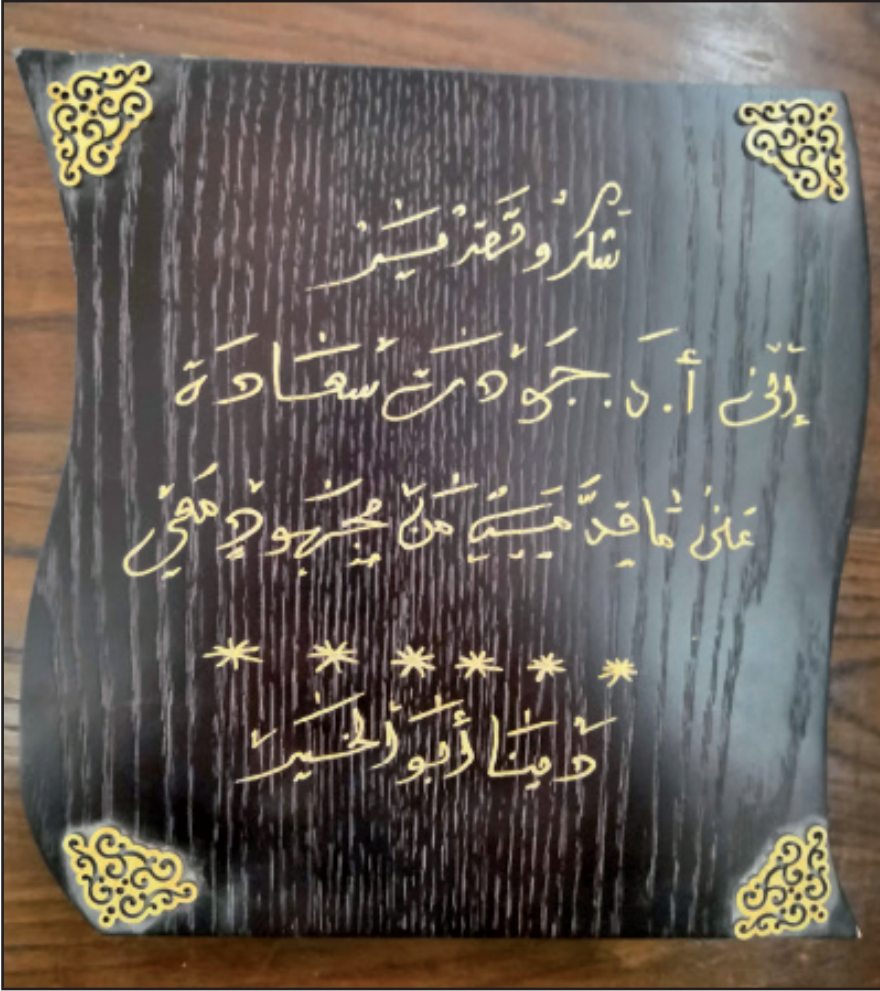 شكر وتقدير
إلى أ. د. جودت سعادة
على ما قدمته من مجهود معي
* * * * * *
دينا أبو الخير